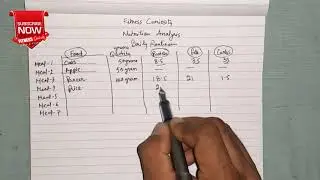 SUBSCRIBE
NOW
Fitness Curiosity
Nutrition Analysis
Daily Routine
Food Quantity Protein Fats Carbs
Meal-1 Oats 50gram 8.5 3.5 33
Meal-2 Apple 50gram — —
Meal-3 Paneer 100gram 18.5 21 1.5
Meal-4 Rice 2
Meal-5
Meal-6
Meal-7